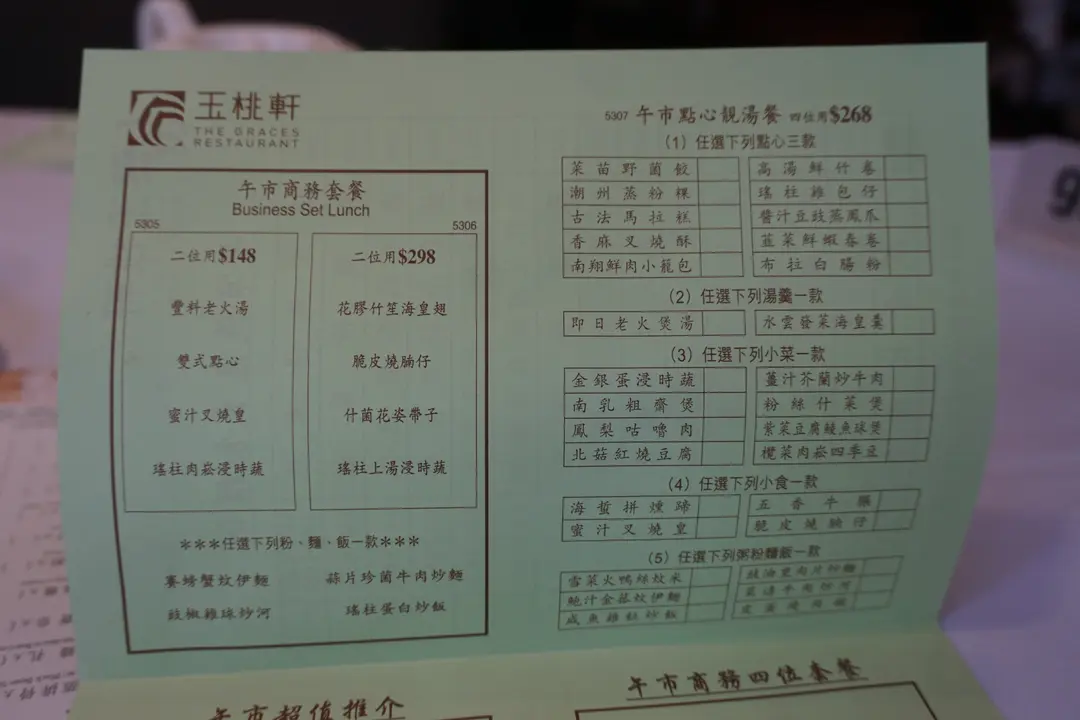 玉桃軒
THE GRACES
RESTAURANT
午市商務套餐
Business Set Lunch
5305
5306
二位用$148
豐料老火湯
雙式點心
蜜汁叉燒皇
瑤柱肉崧浸時蔬
二位用$298
花膠竹笙海皇翅
脆皮燒腩仔
什菌花姿帶子
瑤柱上湯浸時蔬
***任選下列粉、麵、飯一款***
賽螃蟹炆伊麵
蒜片珍菌牛肉炒麵
豉椒雞球炒河
瑤柱蛋白炒飯
5307 午市點心靚湯餐 四位用$268
(1) 任選下列點心三款
菜苗野菌餃
高湯鮮竹卷
潮州蒸粉粿
瑤柱雞包仔
古法馬拉糕
醬汁豆豉蒸鳳爪
香麻叉燒酥
韮菜鮮蝦春卷
南翔鮮肉小籠包
布拉白腸粉
(2) 任選下列湯羹一款
即日老火煲湯
水雲發菜海皇羹
(3) 任選下列小菜一款
金銀蛋浸時蔬
薑汁芥蘭炒牛肉
南乳粗齋煲
粉絲什菜煲
鳳梨咕嚕肉
紫菜豆腐鯪魚球煲
北菇紅燒豆腐
欖菜肉崧四季豆
(4) 任選下列小食一款
海蜇拼燻蹄
五香牛𦟌
蜜汁叉燒皇
脆皮燒腩仔
(5) 任選下列粥粉麵飯一款
雪菜火鴨絲炆米
豉油皇肉片炒麵
鮑汁金菇炆伊麵
菜遠牛肉炒河
咸魚雞粒炒飯
午市超值推介
午市商務四位套餐